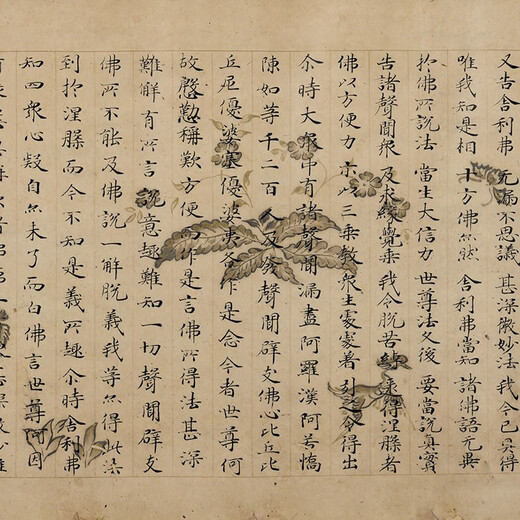 又告舍利弗 无漏不思議 甚深微妙法 我今已具得
唯我知是相 十方佛亦然 舍利弗當知 諸佛語无異
於佛所說法 當生大信力 世尊法久後 要當說真實
告諸聲聞眾 及求緣覺乘 我令脫苦縛 逮得涅槃者
佛以方便力 示以三乘教 眾生處處著 引之令得出
尒時大眾中有諸聲聞漏盡阿羅漢阿若憍
陳如等千二百人及發聲聞辟支佛心比丘比
丘尼優婆塞優婆夷各作是念今者世尊何
故慇懃稱歎方便而作是言佛所得法甚深
難解有所言說意趣難知一切聲聞辟支
佛所不能及佛說一解脫義我等亦得此法
到於涅槃而今不知是義所趣尒時舍利弗
知四眾心疑自亦未了而白佛言世尊何因